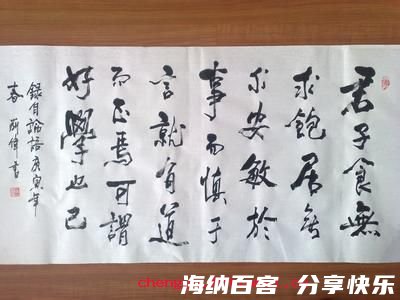 君子食無
求飽居無
求安敏於
事而慎于
言就有道
而正焉可謂
好學也已
錄自論語庚寅年
春
海纳百客 分享快乐